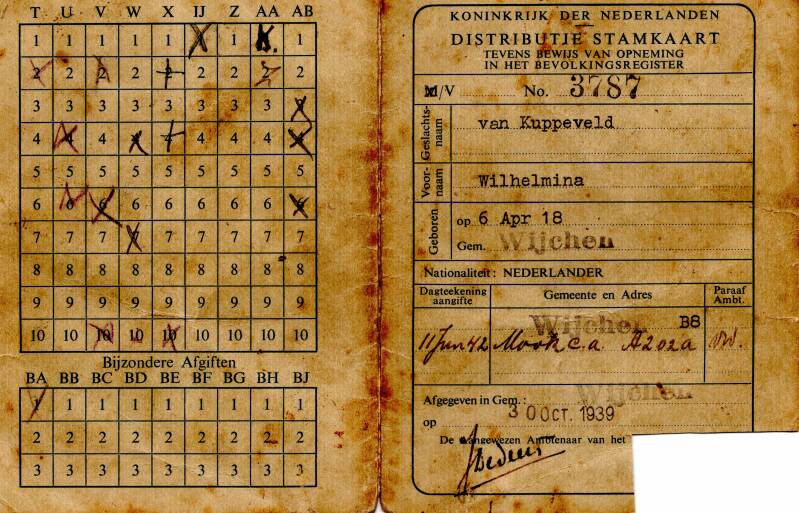 T U V W X IJ Z AA AB
1 1 1 1 1 1 1 1 1
2 2 2 2 2 2 2 2 2
3 3 3 3 3 3 3 3 3
4 4 4 4 4 4 4 4 4
5 5 5 5 5 5 5 5 5
6 6 6 6 6 6 6 6 6
7 7 7 7 7 7 7 7 7
8 8 8 8 8 8 8 8 8
9 9 9 9 9 9 9 9 9
10 10 10 10 10 10 10 10 10
Bijzondere Afgiften
BA BB BC BD BE BF BG BH BJ
1 1 1 1 1 1 1 1 1
2 2 2 2 2 2 2 2 2
3 3 3 3 3 3 3 3 3
KONINKRIJK DER NEDERLANDEN
DISTRIBUTIE STAMKAART
TEVENS BEWIJS VAN OPNEMING
IN HET BEVOLKINGSREGISTER
M/V No. 3787
Geslachts-
naam
van Kuppeveld
Voor-
naam
Wilhelmina
Geboren
op 6 Apr 18
Gem. Wijchen
Nationaliteit: NEDERLANDER
Dagteekening
aangifte
Gemeente en Adres
Paraaf
Ambt.
Wijchen B8
11 Jun 42 Mook c.a. A202a
Afgegeven in Gem.: Wijchen
op 30 OCT. 1939
De aangewezen Ambtenaar van het